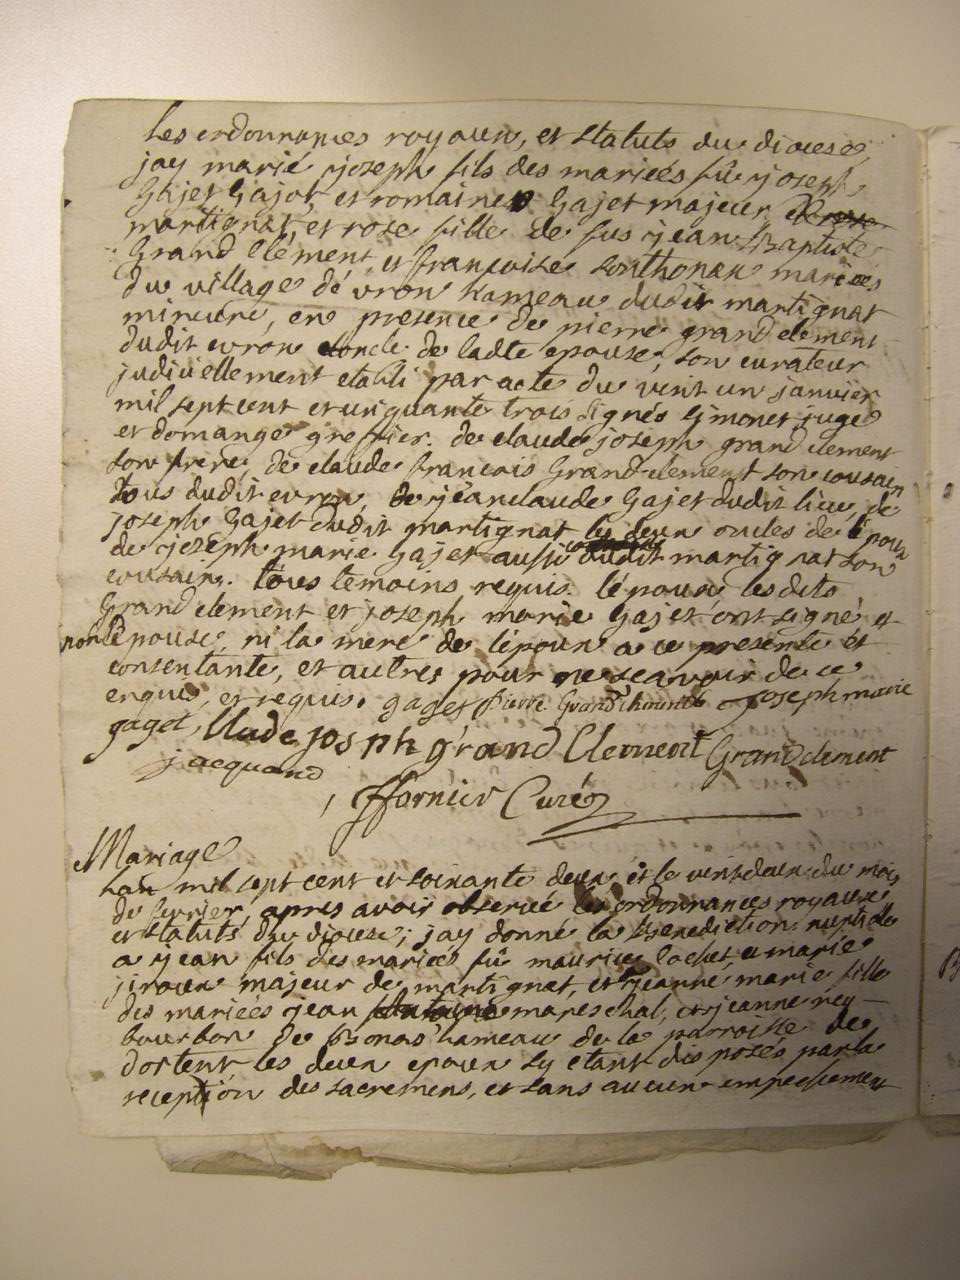 les ordonnances royaux, et statuts du diocese
jay marié joseph fils des mariés fû joseph
Gajet Gajot, et romaine Gajet majeur
martignat, et rose fille de fus jean Baptiste
Grand Clément, et françoise sonthonax mariés
du village dévron hameau dudit martignat
mineure, en presence de pierre grand clement
dudit evron oncle de ladte epouse, son curateur
judiciellement etabli par acte du vint un janvier
mil sept cent et cinquante trois signés simonet juge
et domange greffier. de claude joseph grand clement
son frere, de claude francois Grand clement son cousain
tous dudit evron, de jean claude Gajet dudit lieu, de
joseph Gajet dudit martignat les deux oncles de l'époux
de joseph marie Gajet aussi dudit martignat son
cousain. tous temoins requis. lépoux lesdits
Grand clement et joseph marie Gajet ont signé, et
non lépouse, ni la mere de lépoux a ce presente et
consentante, et autres pour ne scavoir de ce
enquis, et requis. gaget Pierre Grand joseph marie
gaget, Claude joseph grand Clement Grand clement
jacquand
ffornier Curé
Mariage
Lan mil sept cent et soixante deux et le vint deux du mois
de fevrier, apres avoir observé les ordonnances royaux
et statuts du diocese; jay donné la Benediction nuptialle
a jean fils des mariés fû maurice lochet, et marie
jiroux majeur de martignat, et jeanne marie fille
des mariés jean antoine mareschal, et jeanne rey-
bourbon de Bonas hameau de la parroisse de
dortent les deux epoux sy etant disposés par la
reception des sacremens, et sans aucun empechement